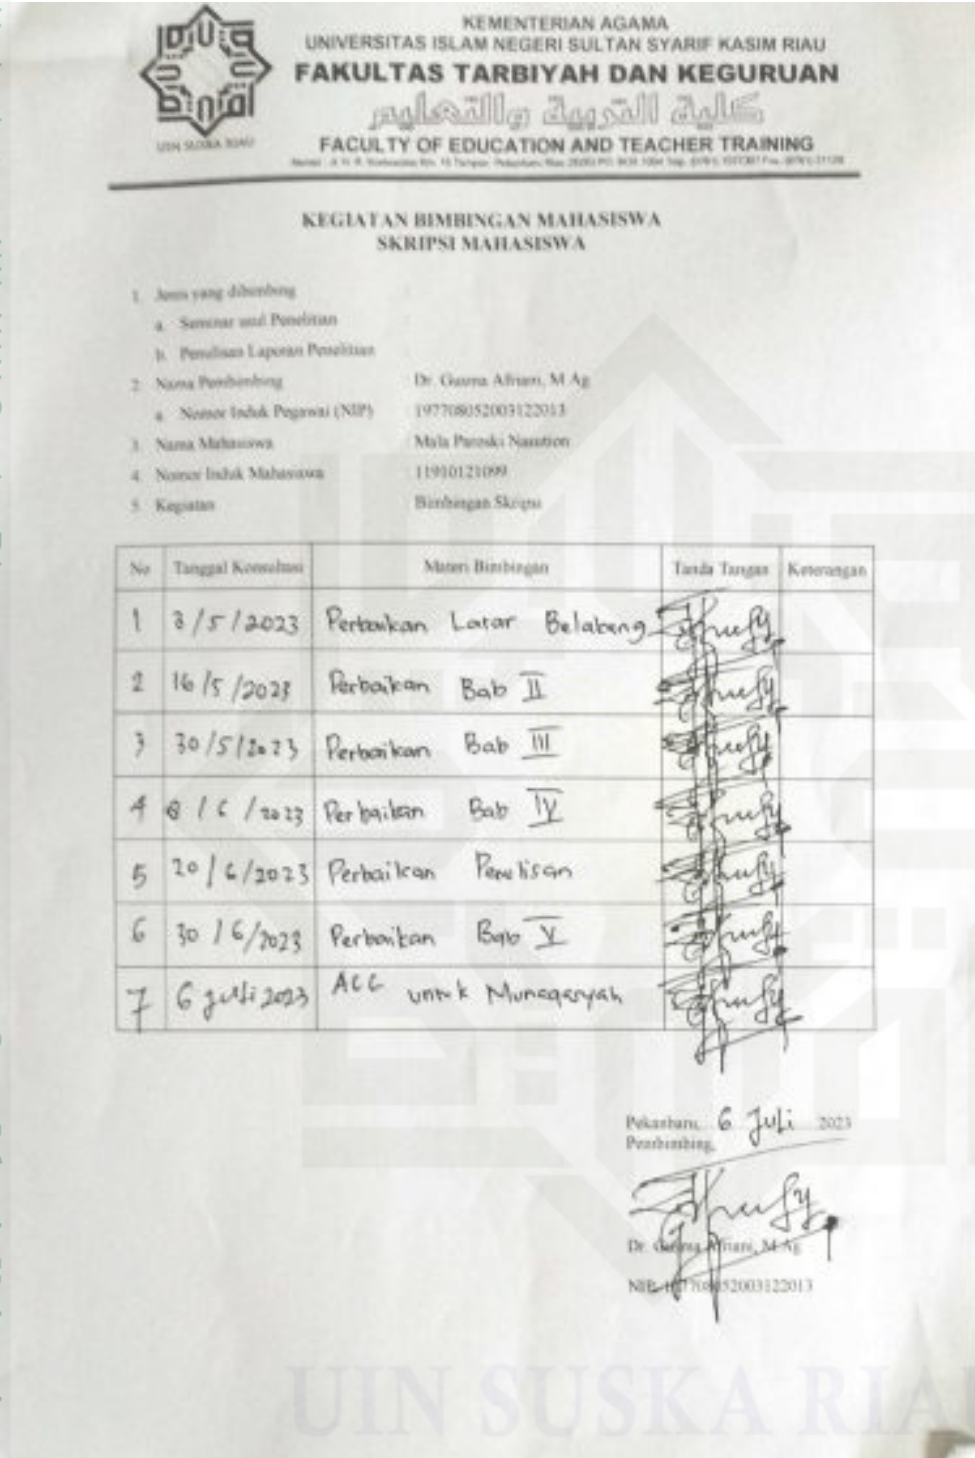 UIN SUSKA RIAU
KEMENTERIAN AGAMA
UNIVERSITAS ISLAM NEGERI SULTAN SYARIF KASIM RIAU
FAKULTAS TARBIYAH DAN KEGURUAN
كلية التربية والتعليم
FACULTY OF EDUCATION AND TEACHER TRAINING
KEGIATAN BIMBINGAN MAHASISWA
SKRIPSI MAHASISWA
1. Jenis yang dibimbing :
a. Seminar usul Penelitian :
b. Penulisan Laporan Penelitian :
2. Nama Pembimbing Dr. Gusma Afriani, M.Ag
a. Nomor Induk Pegawai (NIP) 197708052003122013
3. Nama Mahasiswa Mala Paroski Nasution
4. Nomor Induk Mahasiswa 11910121099
5. Kegiatan Bimbingan Skripsi
No Tanggal Konsultasi Materi Bimbingan Tanda Tangan Keterangan
1 /5/2023 Perbaikan Latar Belakang
2 16/5/2023 Perbaikan Bab II
3 30/5/2023 Perbaikan Bab III
4 8/6/2023 Perbaikan Bab IV
5 20/6/2023 Perbaikan Penulisan
6 30/6/2023 Perbaikan Bab V
7 6 Juli 2023 ACC untuk Munaqasyah
Pekanbaru, 6 Juli 2023
Pembimbing,
Dr. Gusma Afriani, M.Ag
NIP. 197708052003122013
UIN SUSKA RIA